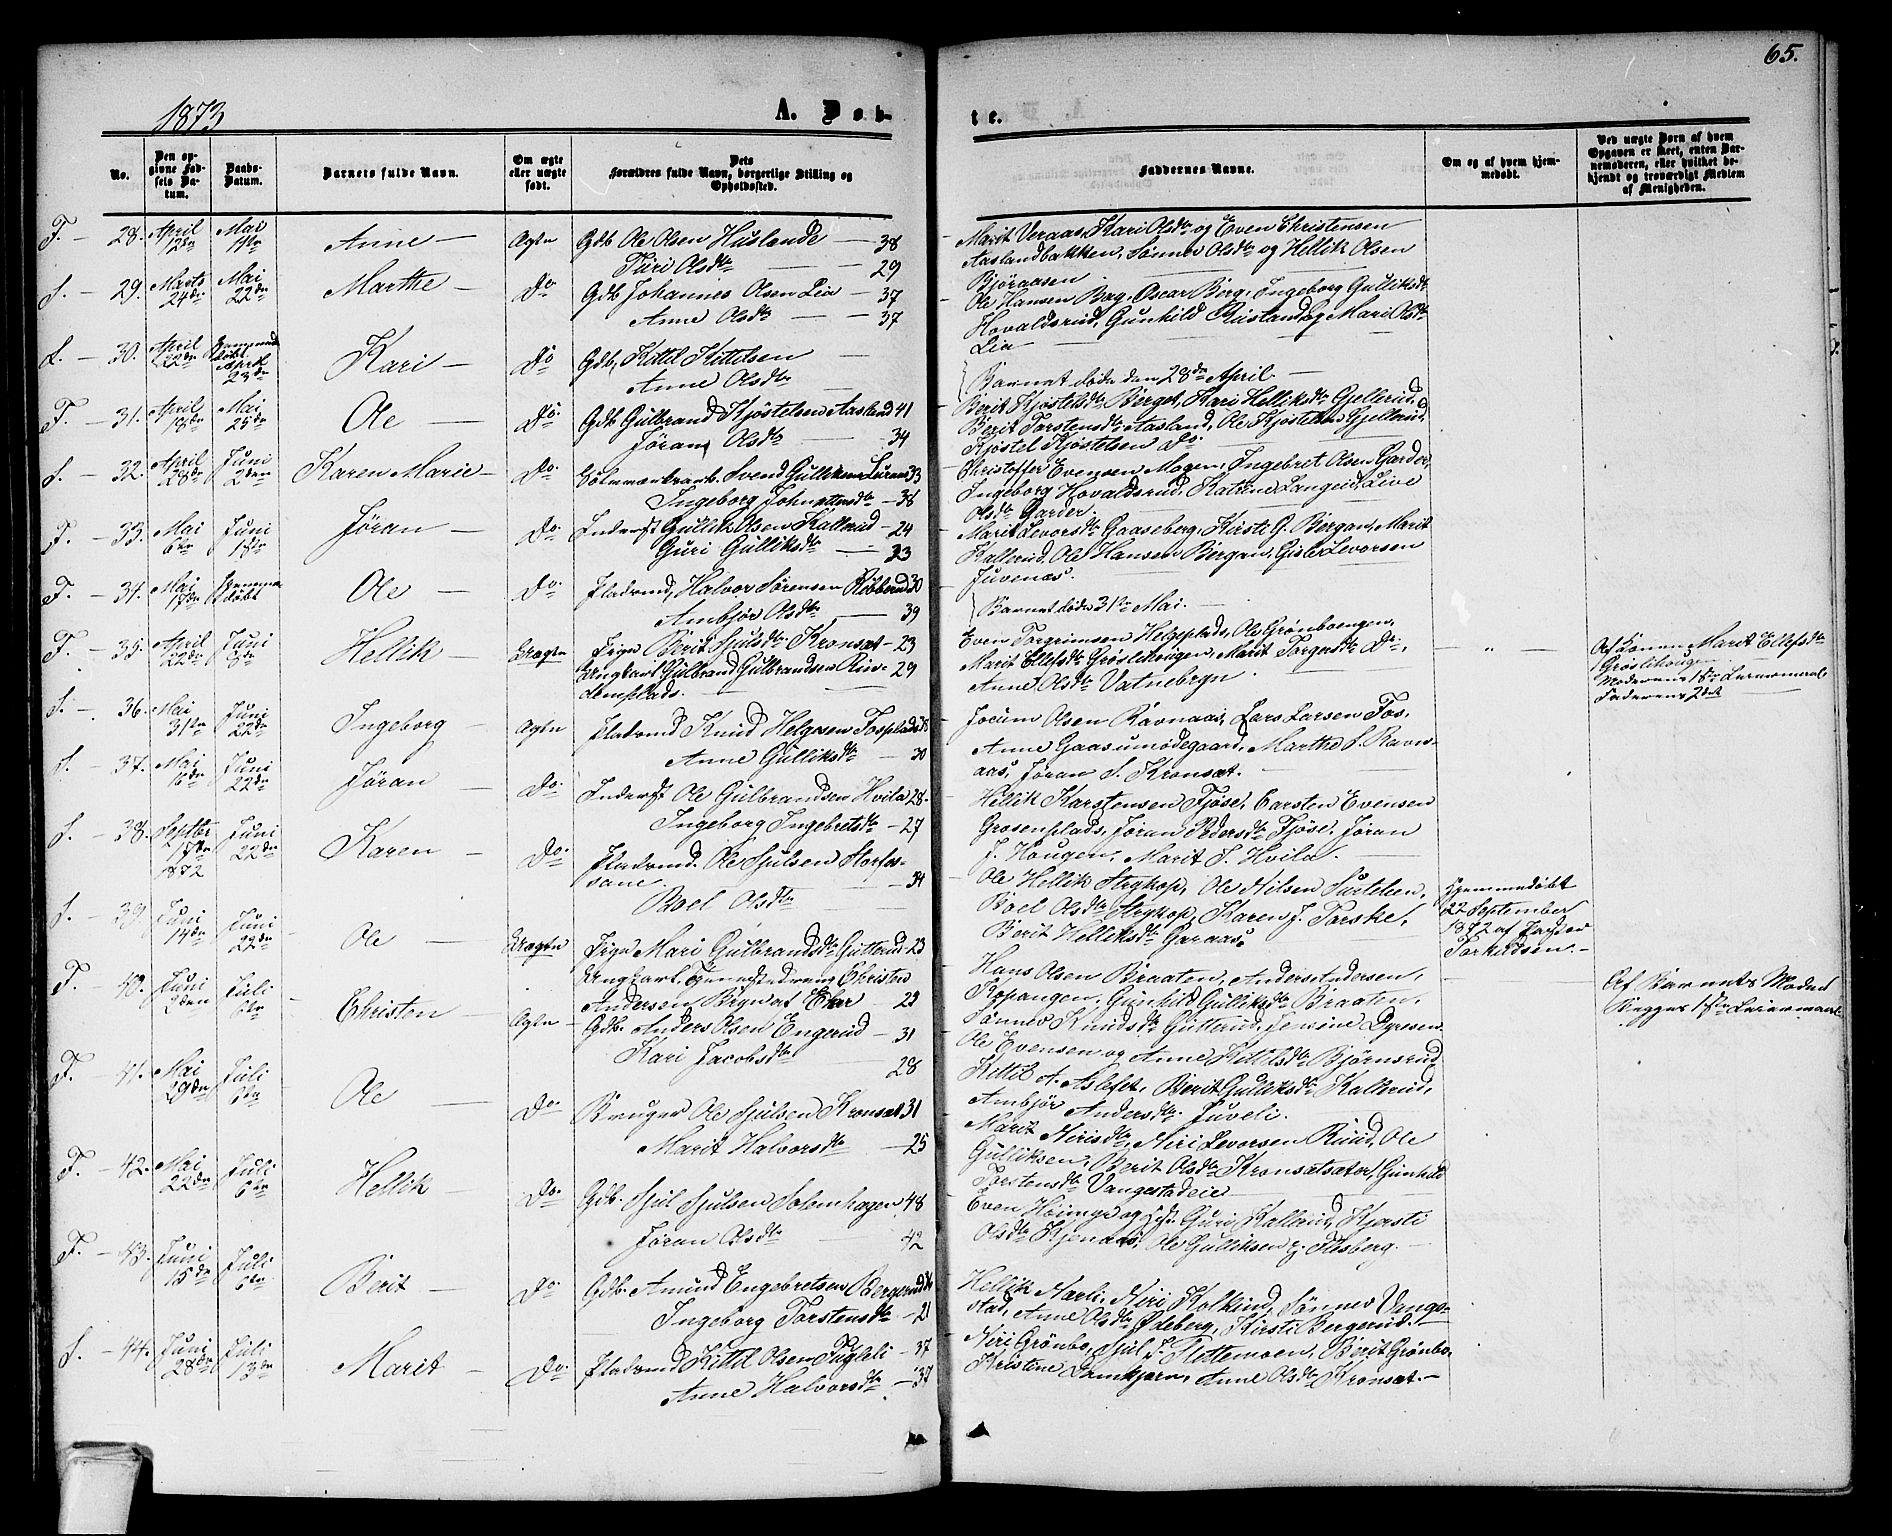 65.
1873
A. Døb-
te.
No.
Den op-
givne Fød-
sels Da-
tum.
Daabs-
Datum.
Barnets fulde Navn.
Om ægte
eller uægte
født.
Dets
Forældres fulde Navn, borgerlige Stilling og
Opholdssted.
Faddernes Navne.
Om og af hvem hjem-
medøbt.
Ved uægte Born af hvem
Opgaven er skeet, enten Bar-
nemoderen, eller hvilket be-
kjendt og troværdigt Medlem
af Menigheden.
28. April 12te Mai Anne Ægte Gdb. Ole Olsen Huslende 38
Turi Olsdtr 29
Marit Veraas, Kari Olsdtr og Even Christensen
Aaslandbakken, Sønnev Olsdtr og Hellik Olsen
Bjøraasen
29. Marts 24de Mai 22de Marthe Do Gdb. Johannes Olsen Lia 37
Anne Olsdtr 37
Ole Hansen Bag, Oscar Berg, Ingeborg Gulliksdtr
Hovaldsrud, Gunhild Rustand og Mari Olsdtr
Lia
30. April 22de Hjemmedøbt April 23de Kari Do Gdb. Kittil Kittilsen
Anne Olsdtr
Barnet døde den 28de April
31. April 18de Mai 25de Ole Do Gdb. Gulbrand Kjøstelsen Aasland 41
Jøran Olsdtr 34
Berit Kjøstelsdtr Berget, Kari Helliksdtr Gjellerud,
Berit Torstensdtr Aasland, Ole Kjøstelsen Gjellerud,
Kjøstel Kjøstelsen Do.
32. April 28de Juni 2den Karen Marie Do. Svend Gulliksen 33
Ingeborg 38
Christoffer Evensen Mogen, Ingebret Olsen Garder,
Ingeborg Hovaldsrud, Katrine Langeid, Live
Olsdtr Garder.
33. Mai 6te Juni Jøran Do. Inderst Gullik Olsen Kallerud 24
Guri Gulliksdtr 23
Marit Levorsdtr Gaaseberg, Kirsti G. Bergan, Marit
Kallerud, Ole Hansen Bergan, Gisle Levorsen
Juvenæs.
34. Mai 17de Hjemmedøbt Ole Do. Pladsmd. Halvor Sørensen 30
Ambjør Olsdtr 39
Barnet døde 31te Mai.
35. April 22de Juni 8de Hellik Uægte Pige Berit Sjulsdtr Kronsæt 23
Ungkarl Gulbrand Gulbrandsen 29
Even Torgrimsen Helgeplads, Ole Grønboengen,
Marit Ellefsdtr Grøslihougen, Marit Torgersdtr Do.,
Anne Olsdtr Vatnebryn
Af Konen Marit Ellefsdtr
Grøslihougen
Moderens 1ste Leiermaal
Faderens 2det
36. Mai 31te Juni 22de Ingeborg Ægte Pladsmd Knud Helgesen Fosplads
Anne Gulliksdtr 30
Jocum Olsen Ravnaas, Lars Larsen Fos,
Anne Gaasumødegaard, Marthe S. Ravn-
aas, Jøran S. Kronsæt.
37. Mai Juni 22de Jøran Do. Inderst Ole Gulbrandsen Hvila 28
Ingeborg Ingebretsdtr 27
Hellik Karstensen Fjøse, Carsten Evensen
Grosenplads, Jøran Pedersdtr Fjøse, Jøran
J. Hougen, Marit S. Hvila.
38. Septbr 17de 1872 Juni 22de Karen Do. Pladsmd. Ole Sjulsen Storfos-
sane 34
Boel Olsdtr
Ole Hellik Strykop, Ole Nilsen Surtelien,
Boel Olsdtr Strykop, Karen J. Torske,
Berit Helliksdtr Garaas.
Hjemmedøbt
22 September
1872 af Karsten
Torkildsen.
39. Juni 14de Juni 22de Ole Uægte Pige Mari Gulbrandsdtr Gutterud 23
Ungkarl Tjenestedreng Christen
Andersen 23
Hans Olsen Braaten, Anders Andersen,
Ropangen, Gunhild Gulliksdtr Braaten,
Sønnev Knudsdtr Gutterud, Jensine Dyresen
Af Barnets Moder
Begges 1ste Leiermaal
40. Juni 2den Juli 6te Christen Ægte Gdb. Anders Olsen Engerud 31
Kari Jacobsdtr 28
Ole Evensen og Anne Kittilsdtr Bjørnsrud,
Kittil A. Aslefet, Berit Gulliksdtr Kallerud,
Ambjør Andersdtr Juveli.
41. Mai 29de Juli 6te Ole Do Bruger Ole Sjulsen Kronsæt 31
Marit Halvorsdtr 25
Marit Nirisdtr, Niri Levorsen Ruud, Ole
Gulliksen, Berit Olsdtr Kronsætsæter, Gunhild
Torstensdtr Vangestadeie
42. Mai 22de Juli 6te Hellik Do. Gdb. Sjul Sjulsen Solemhagen 48
Jøran Olsdtr 42
Even Høimyr og Hst. Guri Kallerud, Kjersti
Olsdtr Kjenaas, Ole Gulliksen Flesberg.
43. Juni 15de Juli 6te Berit Do Gdb. Amund Engebretsen Bergerud
Ingeborg Torstensdtr 21
Hellik Narli, Niri Kolkind, Sønnev Vange-
stad, Anne Olsdtr Ødeberg, Kirsti Bergerud.
44. Juni 28de Juli 13de Marit Do. Pladsmd Kittil Olsen Fugleli 37
Anne Halvorsdtr 37
Niri Grønbo, Sjul S. Slettemoen, Berit Grønbo,
Kristine Damkjern, Anne Olsdtr Kronsæt.